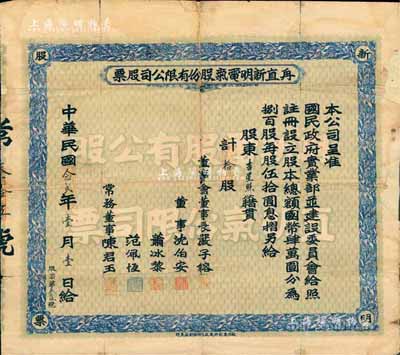 新
股
明
票
甪直新明電氣股份有限公司股票
本公司呈准
國民政府實業部並建設委員會給照
註冊設立股本總額國幣肆萬圓分為
捌百股每股伍拾圓息摺另給
股東 籍貫
計 拾 股
董事會董事長嚴子榕
董事沈伯安
蕭冰黎
范佩恆
常務董事陳君玉
中華民國 年壹月壹日給